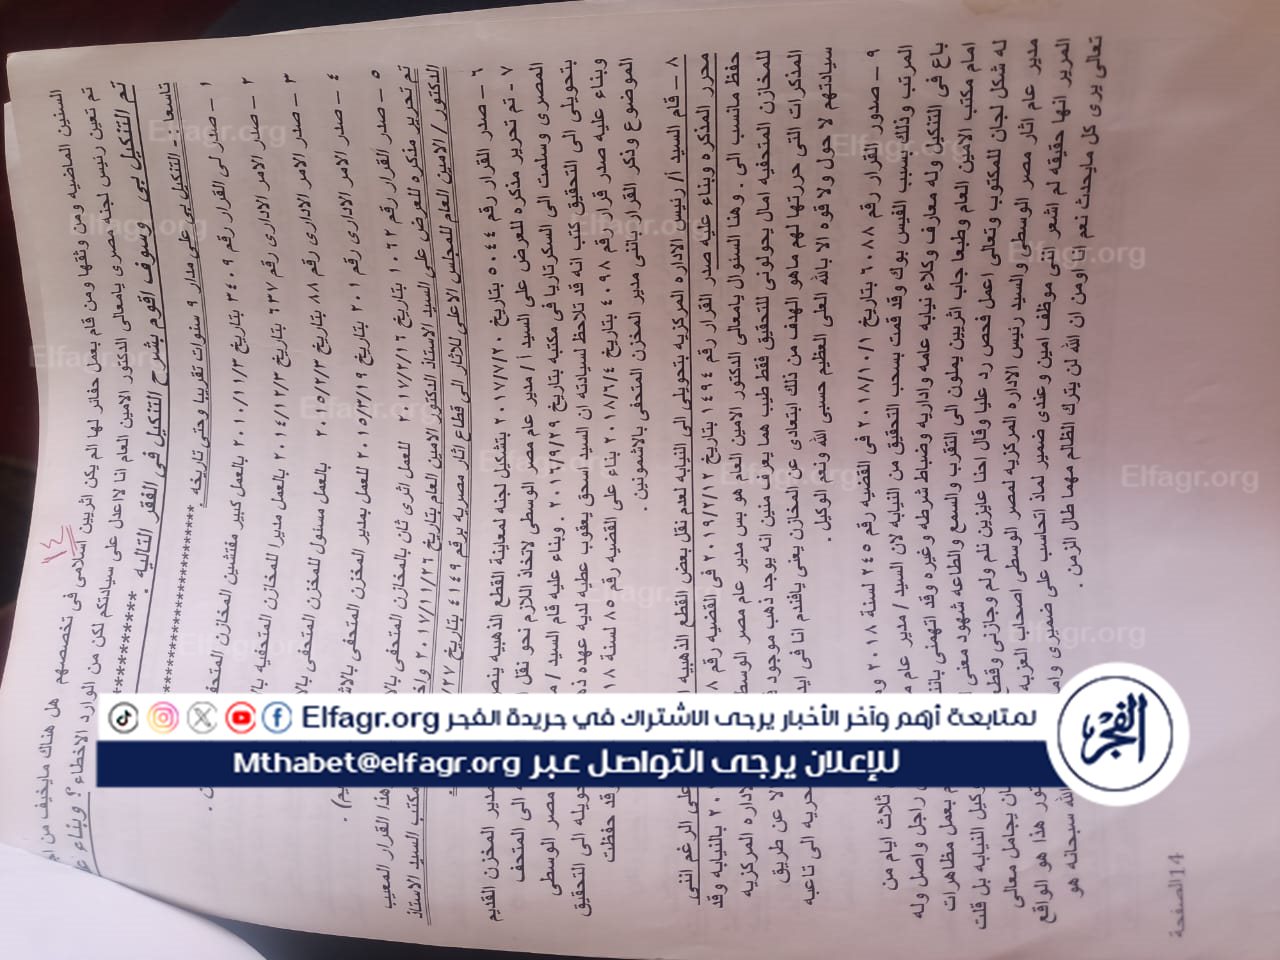 ١٤
السنين الماضيه ومن وثقها ومن قام بعمل حفائر لها الم يكن اثريين اسلامى فى تخصصهم هل هناك مايخيف من
تم تعين رئيس لجنه مصرى يامعالى الدكتور الامين العام انا لااعدل على سيادتكم لكن من الوارد الاخطاء ؟ وبناء
تم التنكيل بى وسوف اقوم بشرح التنكيل فى الفقر التاليه .
تاسعا - التنكيل بى على مدار ٩ سنوات تقريبا وحتى تاريخه
١ - صدر لى القرار رقم ٣٤٠٩ بتاريخ ٢٠١٠/١١/٣ بالعمل كبير مفتشين المخازن
٢ - صدر الامر الادارى رقم ٦٣٧ بتاريخ ٢٠١٤/١٢/٣ بالعمل مديرا للمخازن المتحفيه
٣ - صدر الامر الادارى رقم ٨٨ بتاريخ ٢٠١٥/٢/٣ بالعمل مسئول للمخزن المتحفى
٤ - صدر الامر الادارى رقم ٢٠١ بتاريخ ٢٠١٥/٣/١٩ للعمل بمدير المخزن المتحفى
٥ - صدر القرار رقم ١٠٦٢ بتاريخ ٢٠١٧/٢/١٦ للعمل اثرى ثان بالمخازن المتحفى هذا القرار المعيب
تم تحرير مذكره للعرض على السيد الاستاذ الدكتور الامين العام بتاريخ ٢٠١٧/١١/٢٦ مكتب السيد الاستاذ
الدكتور / الامين العام للمجلس الاعلى للاثار الى قطاع اثار مصريه برقم ٤١٤٩ بتاريخ
٦ - صدر القرار رقم ٥٠٤٤ بتاريخ ٢٠١٧/٧/٢٠ بتشكيل لجنه لمعاينة القطع الذهبيه مدير المخزن القديم
٧ - تم تحرير مذكره للعرض على السيد أ / مدير عام مصر الوسطى لاتخاذ اللازم نحو نقل الى المتحف
المصرى وسلمت الى السكرتاريا فى مكتبه بتاريخ ٢٠١٦/٩/٢٩ . وبناء عليه قام السيد / مصر الوسطى
بتحويلى الى التحقيق كتب انه قد تلاحظ لسيادته ان السيد سحق يعقوب عطيه لديه عهده تحويله الى التحقيق
وبناء عليه صدر قرار رقم ٤٠٩٨ بتاريخ ٢٠١٨/٦/٤ بناء على القضيه رقم ٨٥ لسنة وقد حفظت
الموضوع وذكر القرار باننى مدير المخزن المتحفى بالاشمونين .
٨ - قام السيد أ/ رئيس الاداره المركزيه بتحويلى الى النيابه لعدم نقل بعض القطع الذهبيه على الرغم اننى
محرر المذكره وبناء عليه صدر القرار رقم ١٤٩٤ بتاريخ ٢٠١٩/٢/١٢ فى القضيه رقم بالنيابه وقد
حفظ مانسب الى . وهنا السئوال يامعالى الدكتور الامين العام هو بس مدير عام مصر الوسطى الاداره المركزيه
للمخازن المتحفيه امال يحولونى للتحقيق فقط طيب هما يعرف منين انه يوجد ذهب موجود عن طريق
المذكرات التى حررتها لهم ماهو الهدف من ذلك ابتعادى عن المخازن يعنى يافندم انا فى الى تاعبه
سيادتهم لا حول ولا قوه الا بالله العلى العظيم حسبى الله ونعم الوكيل .
٩ - صدور القرار رقم ٦٠٨٨ بتاريخ ٢٠١٨/١٠/١ فى القضيه رقم ٢٤٥ لسنة ٢٠١٨ ثلاث ايام من
المرتب وذلك بسبب الفيس بوك وقد قمت بسحب التحقيق من النيابه لان السيد / مدير عام راجل واصل وله
باع فى التنكيل وله معارف وكلاء نيابه عامه واداريه وضباط شرطه وغيره وقد اتهمنى بعمل مظاهرات
امام مكتب الامين العام وطبعا جاب اثريين يميلون الى التقرب والسمع والطاعه شهود معنى وكيل النيابه بل قلت
له شكل لجان للمكتوب وتعالى اعمل فحص رد عليا وقال احنا عايزين نلم ولم وجازنى يجامل معالى
مدير عام اثار مصر الوسطى والسيد رئيس الاداره المركزيه لمصر الوسطى اصحاب العزبه هذا هو الواقع
المرير انها حقيقه لم اشعر انى موظف امين وعندى ضمير لماذ اتحاسب على ضميرى الله سبحانه هو
تعالى يرى كل مايحدث نعم انا اومن ان الله لن يترك الظالم مهما طال الزمن .
14الصفحة
لمتابعة أهم وآخر الأخبار يرجى الاشتراك في جريدة الفجر Elfagr.org
للإعلان يرجى التواصل عبر Mthabet@elfagr.org
الفجر
Elfagr.org